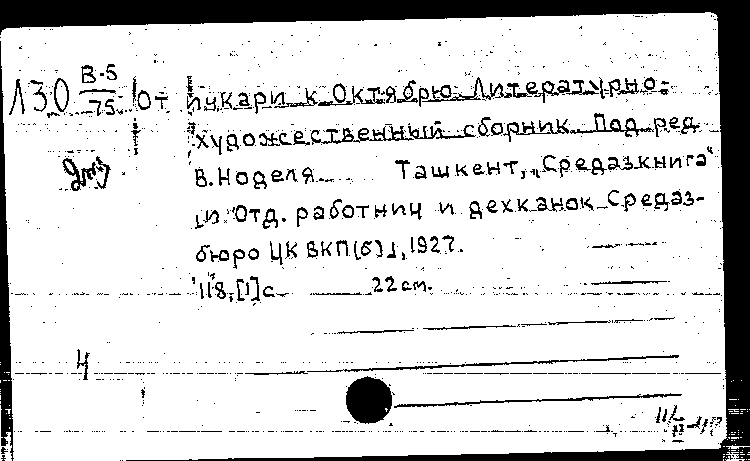 Л30 В-5/75 От ичкари к Октябрю Литературно-
художественный сборник Под ред
В. Ноделя Ташкент, "Средазкнига"
[и "Отд. работниц и дехканок Средаз-
бюро ЦК ВКП(б)], 1927.
118, [1] с 22 см.
4